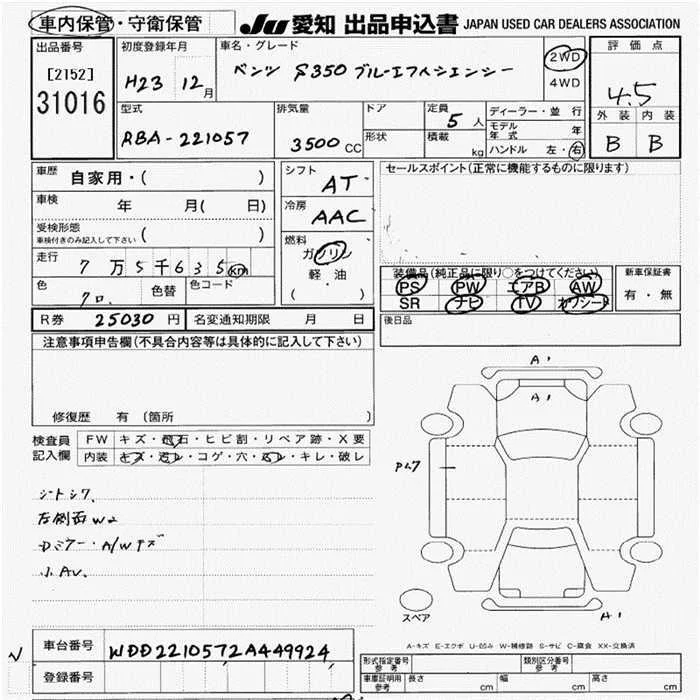 車内保管・守衛保管
JU 愛知 出品申込書 JAPAN USED CAR DEALERS ASSOCIATION
出品番号
[2152]
31016
初度登録年月
H23 12月
車名・グレード
ベンツ S350 ブルーエフィシェンシー
2WD
4WD
評価点
4.5
外装 内装
B B
型式
RBA-221057
排気量
3500 CC
ドア
形状
定員
5人
積載
kg
ディーラー・並行
モデル年式 年
ハンドル 左・右
車歴
自家用・( )
車検
年 月( 日)
受検形態
車検付きのみ記入して下さい
( )
走行
7万5千635km
色
クロ
色替
色コード
シフト
AT
冷房
AAC
燃料
ガソリン
軽油
( )
セールスポイント(正常に機能するものに限ります)
装備品(純正品に限り○をつけてください)
PS PW エアB AW
SR ナビ TV カワシート
新車保証書
有・無
後日品
R券 25030 円 名変通知期限 月 日
注意事項申告欄(不具合内容等は具体的に記入して下さい)
修復歴 有 (箇所 )
検査員記入欄
FW キズ・飛石・ヒビ割・リペア跡・X要
内装 キズ・汚レ・コゲ・穴・スレ・キレ・破レ
シートシワ、
左側面W2
Dミラー・A/Wキズ
小AU、
A1
A1
A1
スペア
A-キズ E-エクボ U-凹み W-補修跡 S-サビ C-腐食 XX-交換済
車台番号
WDD2210572A449924
登録番号
形式指定番号 参考
類別区分番号 参考
車庫証明用 参考
長さ cm 幅 cm 高さ cm